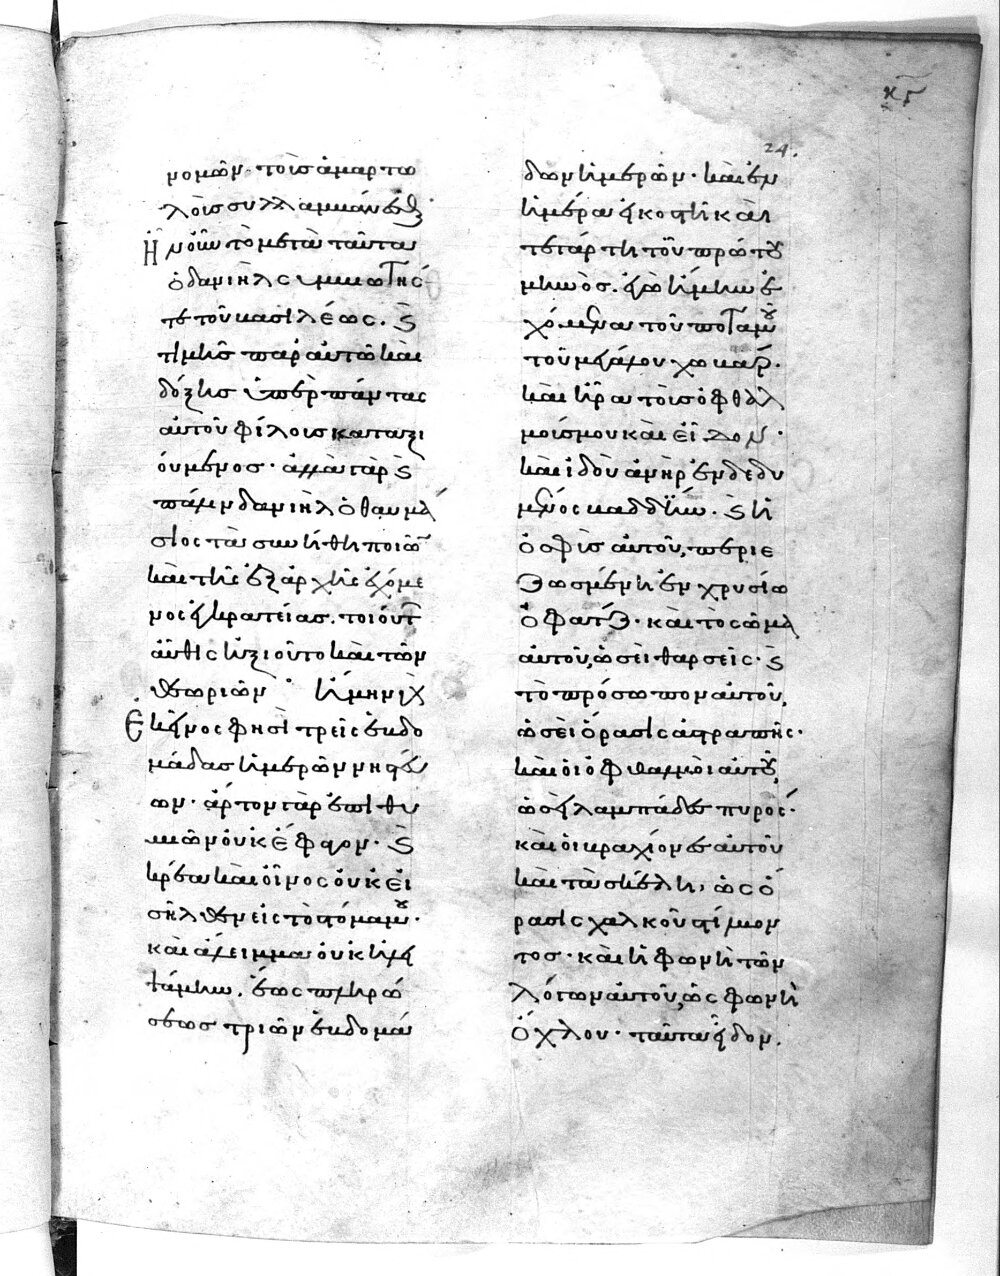 κϛ
24.
νομῶν· τοῖς ἁμαρτω
λοῖς συλλαμβάνεσθαι·
Ἦν οὖν τὸ μετὰ ταῦτα
ὁ δανιὴλ συμβιωτὴς
τε τοῦ βασιλέως. καὶ
τιμῆς παρ αυτῶ καὶ
δόξης ὑπὲρ πάντας
αὐτοῦ φίλοις καταξι
ούμενος· ἀλλὰ γὰρ καὶ
πάλιν δανιὴλ ὁ θαυμά
σιος τὰ συνήθη ποιῶν
καὶ τῆς ἐξ ἀρχῆς ἐχόμε
νος ἐγκρατείας. τοιούτων
αὖθις ἠξιοῦτο καὶ τῶν
θεωριῶν
Ἐκεῖνος φησὶ τρεῖς ἑβδο
μάδας ἡμερῶν νηστεύ
ων· ἄρτον γὰρ ἐπιθυ
μιῶν οὐκ ἔφαγον· καὶ
κρέα καὶ οἶνος οὐκ εἰ
σῆλθεν εἰς τὸ στόμα μου·
καὶ ἄλειμμα οὐκ ἠλει
ψάμην. ἕως πληρώ
σεως τριῶν ἑβδομά
δων ἡμερῶν· καὶ ἐν
ἡμέρα εἰκοστῆ καὶ
τετάρτη τοῦ πρώτου
μηνός. ἐγὼ ἤμην ἐ
χόμενα τοῦ ποταμοῦ
τοῦ μεγάλου χωβάρ.
καὶ ἦρα τοὺς ὀφθαλ
μούς μου καὶ εἶδον·
καὶ ἰδοὺ ἀνὴρ ἐνδεδυ
μένος βαδδίν. καὶ ἡ
ὀσφὺς αὐτοῦ, περιε
ζωσμένη ἐν χρυσίω
ὀφάζ· καὶ τὸ σῶμα
αὐτοῦ, ὡσεὶ θαρσείς· καὶ
τὸ πρόσωπον αὐτοῦ,
ὡσεὶ ὅρασις ἀστραπῆς·
καὶ οἱ ὀφθαλμοὶ αὐτοῦ,
ὡσεὶ λαμπάδες πυρός·
καὶ οἱ βραχίονες αὐτοῦ
καὶ τὰ σκέλη, ὡς ὅ
ρασις χαλκοῦ στίλβον
τος· καὶ ἡ φωνὴ τῶν
λόγων αὐτοῦ, ὡς φωνὴ
ὄχλου· ταῦτα εἶδον.